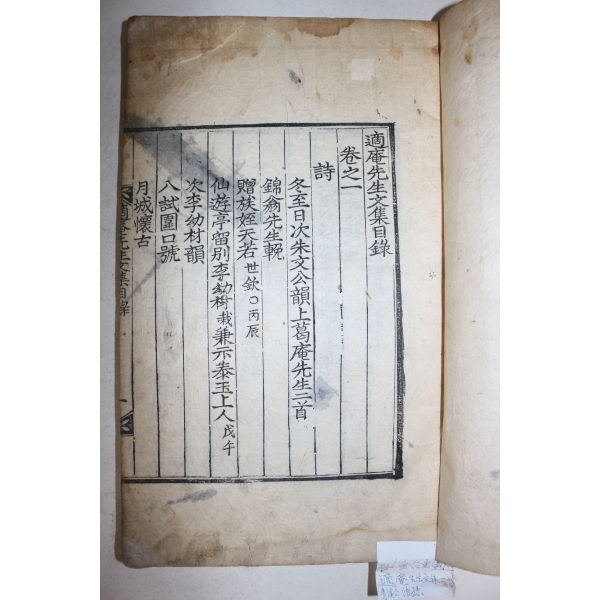 適庵先生文集目錄
卷之一
詩
冬至日次朱文公韻上葛庵先生二首
錦翁先生輓
贈族姪天若世欽○丙辰
仙遊亭留別李幼材栽兼示泰玉上人戊午
次李幼材韻
入試圍口號
月城懷古
適庵先生文集目錄
一
適庵先生文集